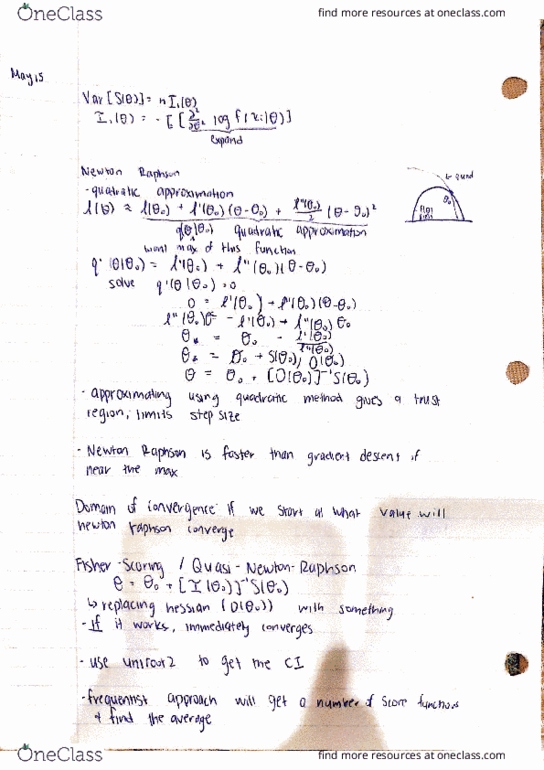 OneClass
find more resources at oneclass.com
May 15
Var[S(θ)] = n I₁(θ)
I₁(θ) = -E[∂²/∂θ² log f(xᵢ|θ)]
expand
Newton Raphson
- quadratic approximation
l(θ) ≈ l(θ₀) + l'(θ₀)(θ-θ₀) + l''(θ₀)/2 (θ-θ₀)²
q(θ|θ₀) quadratic approximation
want max of this function
q'(θ|θ₀) = l'(θ₀) + l''(θ₀)(θ-θ₀)
solve q'(θ|θ₀) = 0
0 = l'(θ₀) + l''(θ₀)(θ-θ₀)
l''(θ₀)θ = -l'(θ₀) + l''(θ₀)θ₀
θ* = θ₀ - l'(θ₀)/l''(θ₀)
θ* = θ₀ + S(θ₀)/O(θ₀)
θ = θ₀ + [O(θ₀)]⁻¹S(θ₀)
- approximating using quadratic method gives a trust
region, limits step size
- Newton Raphson is faster than gradient descent if
near the max
Domain of convergence: if we start at what value will
newton raphson converge
Fisher-Scoring / Quasi-Newton-Raphson
θ = θ₀ + [I(θ₀)]⁻¹S(θ₀)
↳ replacing hessian (O(θ₀)) with something
- If it works, immediately converges
- use uniroot2 to get the CI
- frequentist approach will get a number of score functions
+ find the average
OneClass
find more resources at oneclass.com